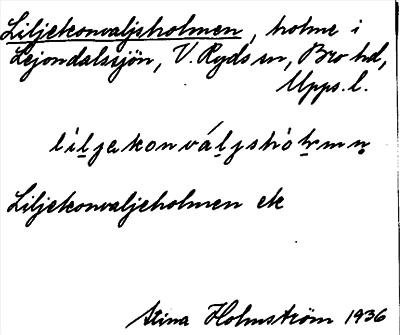 Liljekonvaljsholmen, holme i
Lejondalssjön, V. Ryds sn, Bro hd,
Upps. l.
Liljekonvaljeholmen ek
Stina Holmström 1936